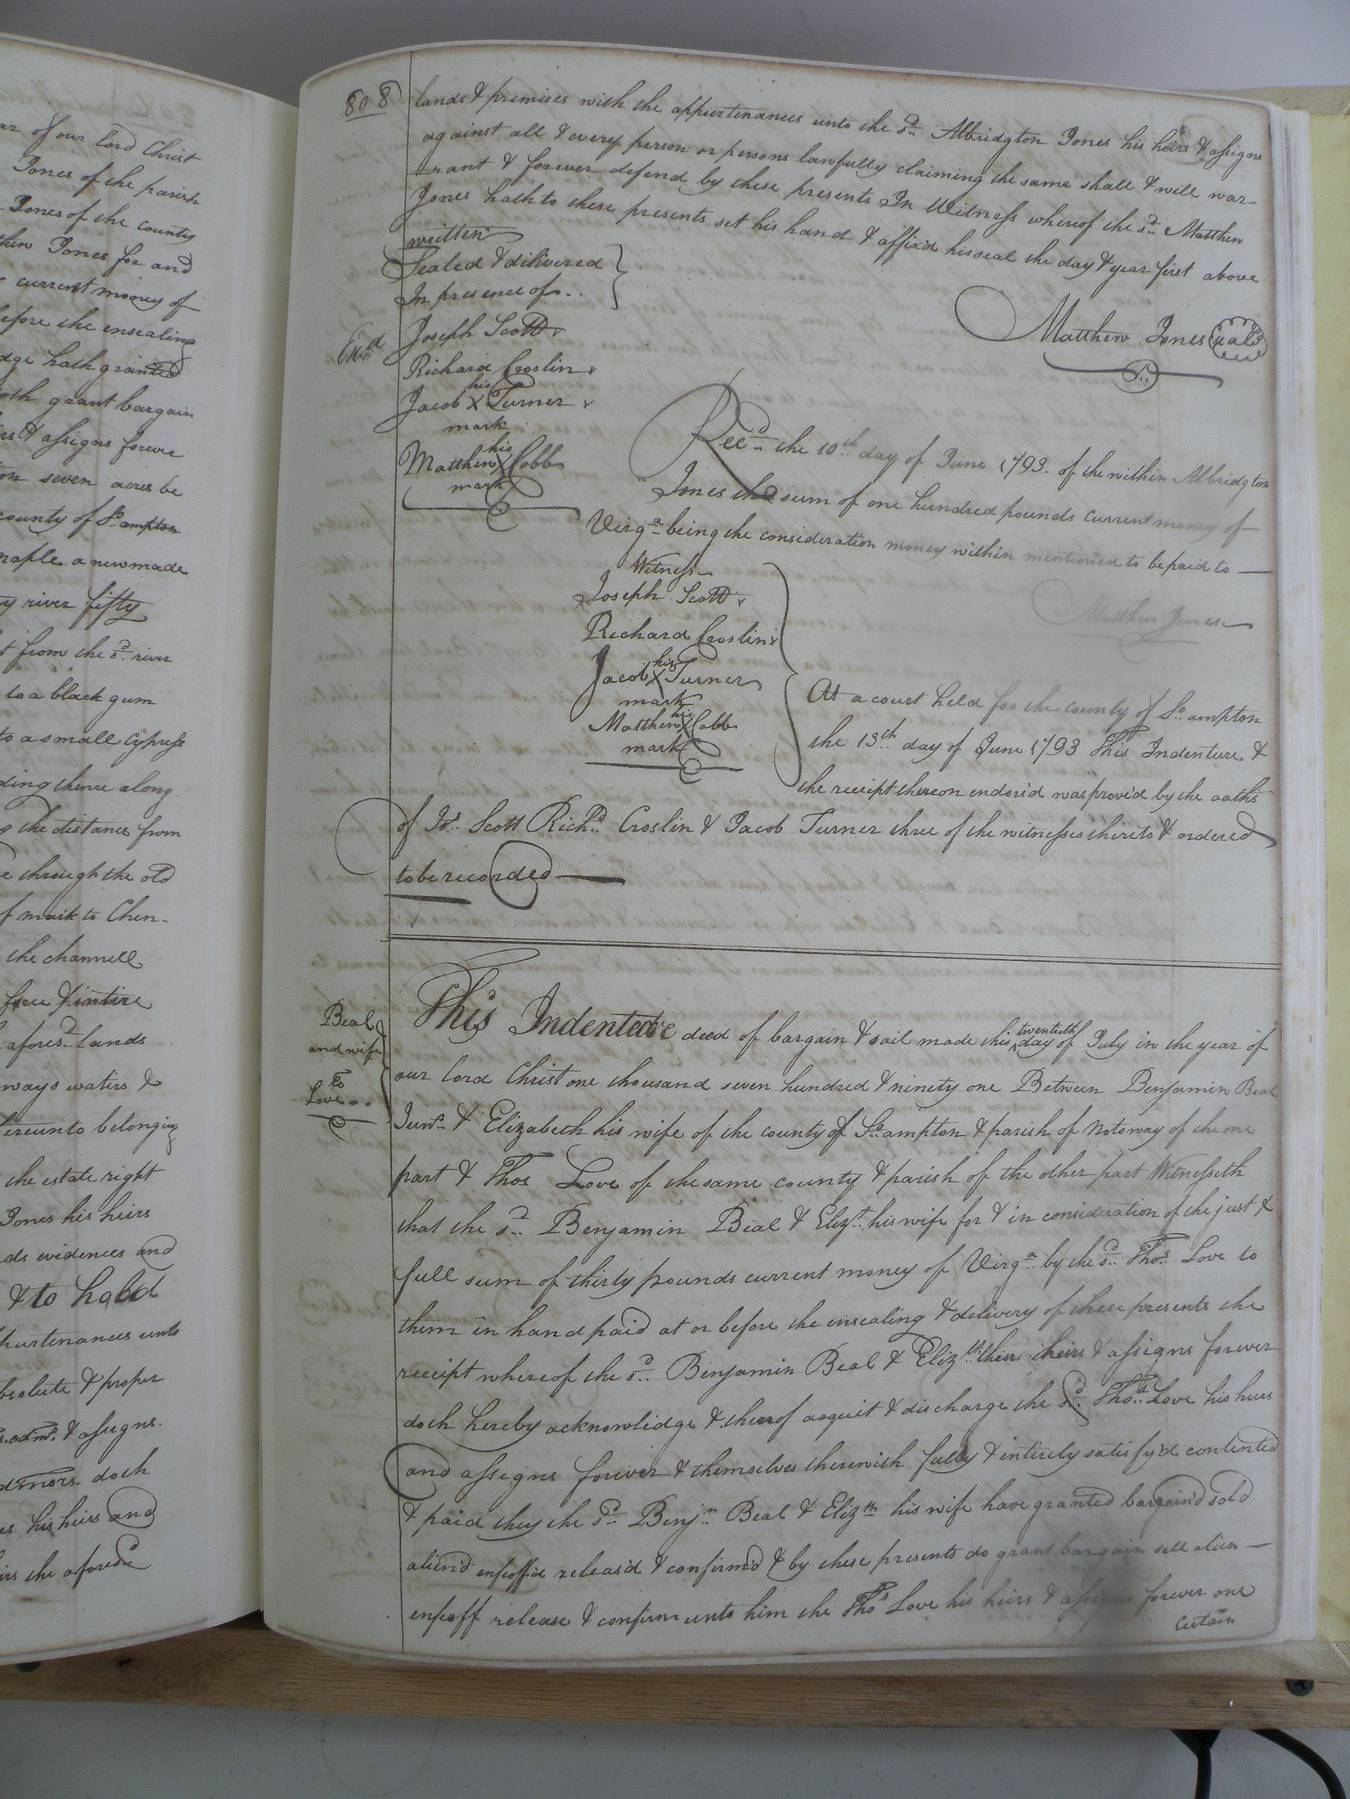 ar of our lord Christ
Jones of the parish
Jones of the county
thew Jones for and
current money of
efore the ensealing
dge hath granted
oth grant bargain
irs & assigns forever
on seven acres be
county of So.ampton
maple a new made
y river fifty
t from the sd. river
to a black gum
to a small Cypress
ding thence along
g the distance from
e through the old
f mark to Chen-
the channell
free & intire
afores.d lands
ways waters &
hereunto belonging
the estate right
Jones his heirs
ds evidences and
& to hold
purtenances unto
bsolute & proper
s. adm.rs & assigns.
dmors. doth
es his heirs and
irs the aforesd
808
lands & premises with the appurtenances unto the sd. Albridgton Jones his heirs & assigns
against all & every person or persons lawfully claiming the same shall & will war-
rant & forever defend by these presents In Witness whereof the sd. Matthew
Jones hath to these presents set his hand & affix'd his seal the day & year first above
written
Sealed & delivered
In presence of..
Matthew Jones (seal)
Joseph Scott
Exd.
Richard Croslin
his
Jacob X Turner
mark
his
Matthew X Cobb
mark
Recd. the 10th day of June 1793. of the within Albridgton
Jones the sum of one hundred pounds current money of
Virga. being the consideration money within mentioned to be paid to
Witness
Matthew Jones
Joseph Scott
Richard Croslin
his
Jacob X Turner
mark
his
Matthew X Cobb
mark
At a court held for the county of So.ampton
the 13th day of June 1793 This Indenture &
the receipt thereon endors'd was prov'd by the oaths
of Jo. Scott Richd. Croslin & Jacob Turner three of the witnesses thereto & ordered
to be recorded
Beal
and wife
To
Love
This Indented deed of bargain & sail made this twentieth day of July in the year of
our lord Christ one thousand seven hundred & ninety one Between Benjamin Beal
Junr. & Elizabeth his wife of the county of So.ampton & parish of Notoway of the one
part & Thos Love of the same county & parish of the other part Witnesseth
that the sd. Benjamin Beal & Elizt. his wife for & in consideration of the just &
full sum of thirty pounds current money of Virga. by the sd. Thos. Love to
them in hand paid at or before the ensealing & delivery of these presents the
receipt whereof the sd. Benjamin Beal & Elizth. their heirs & assigns forever
doth hereby acknowlidge & thereof acquit & discharge the sd. Thos. Love his heirs
and assigns forever & themselves therewith fully & intirely satisfy'd contented
& paid they the sd. Benjn. Beal & Elizth his wife have granted bargain'd sold
alien'd enfeoff'd releas'd & confirm'd & by these presents do grant bargain sell alien
enfeoff release & confirm unto him the Thos Love his heirs & assigns forever one
certain